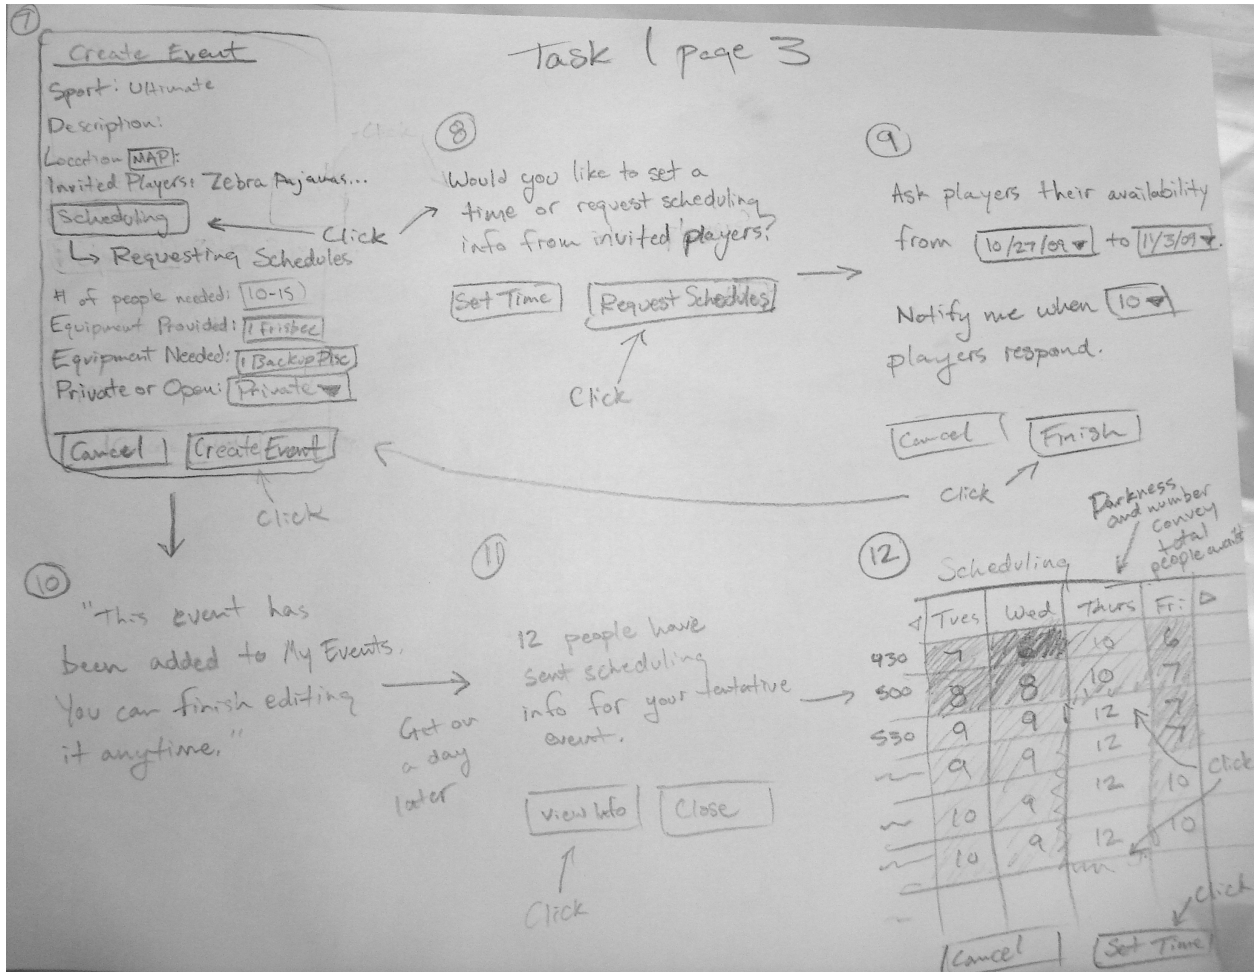 Task 1 page 3
7
Create Event
Sport: Ultimate
Description:
Location MAP:
Invited Players: Zebra Pajamas...
Scheduling
Requesting Schedules
# of people needed: 10-15
Equipment Provided: 1 Frisbee
Equipment Needed: 1 Backup Disc
Private or Open: Private
Cancel Create Event
Click
Click
Click
8
Would you like to set a
time or request scheduling
info from invited players?
Set Time Request Schedules
Click
9
Ask players their availability
from 10/27/09 to 11/3/09.
Notify me when 10
players respond.
Cancel Finish
Click
10
"This event has
been added to My Events.
You can finish editing
it anytime."
Get on
a day
later
11
12 people have
sent scheduling
info for your tentative
event.
View Info Close
Click
12
Scheduling
Darkness
and number
convey
total
people
Tues Wed Thurs Fri
430 7 10 6
500 8 8 10 7
530 9 9 12 7
9 9 12 7
10 9 12 10
10 9 12 10
Click
Click
Cancel Set Time